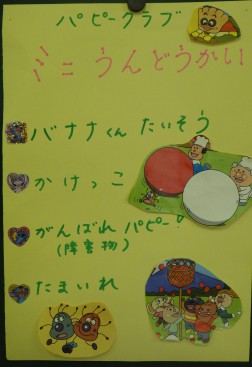 パピークラブ
ミニうんどうかい
バナナくんたいそう
かけっこ
がんばれパピー!
(障害物)
たまいれ